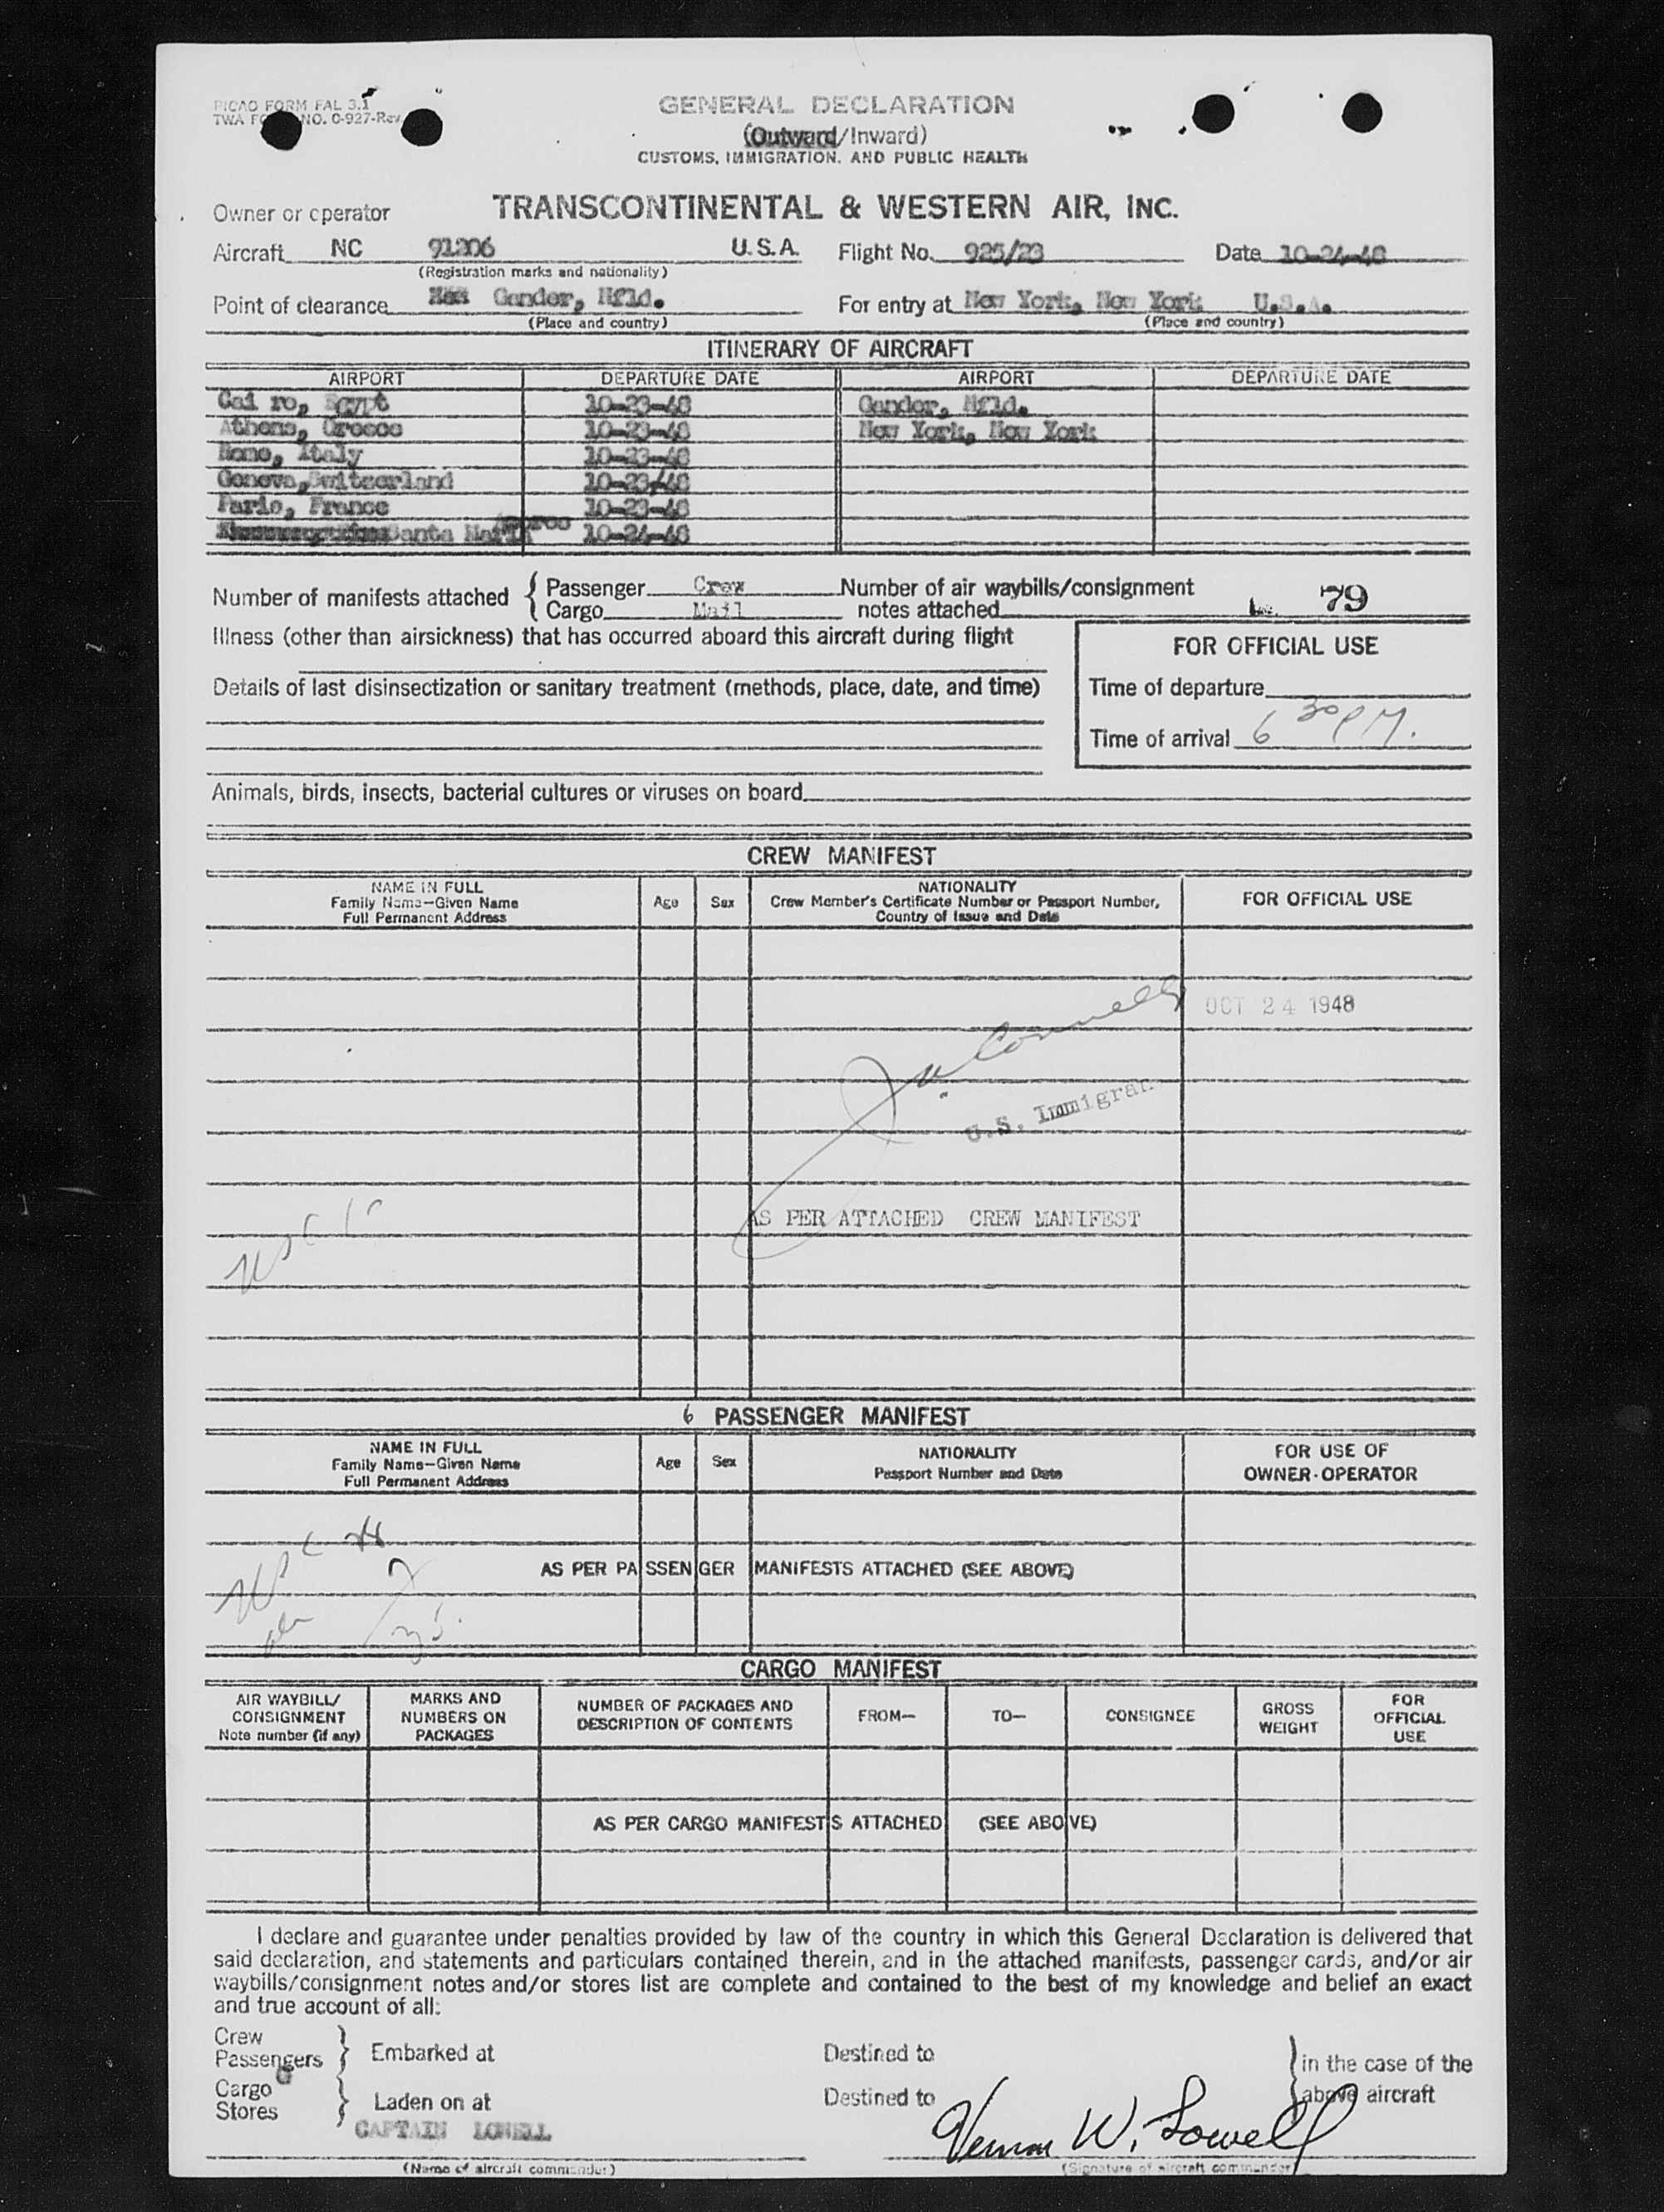 PICAO FORM FAL 3.1
TWA NO. 0-927-Rev.
GENERAL DECLARATION
(Outward/Inward)
CUSTOMS, IMMIGRATION, AND PUBLIC HEALTH
Owner or operator TRANSCONTINENTAL & WESTERN AIR, INC.
Aircraft NC 91206 U.S.A. Flight No. 925/23 Date 10-24-48
(Registration marks and nationality)
Point of clearance Gander, Nfld. For entry at New York, New York U.S.A.
(Place and country) (Place and country)
ITINERARY OF AIRCRAFT
AIRPORT DEPARTURE DATE AIRPORT DEPARTURE DATE
Cai ro, Egypt 10-23-48 Gander, Nfld.
Athens, Greece 10-23-48 New York, New York
Rome, Italy 10-23-48
Geneva,Switzerland 10-23/48
Paris, France 10-23-48
Santa Maria Azores 10-24-48
Number of manifests attached { Passenger Crew Number of air waybills/consignment 79
Cargo Mail notes attached
Illness (other than airsickness) that has occurred aboard this aircraft during flight
FOR OFFICIAL USE
Details of last disinsectization or sanitary treatment (methods, place, date, and time)
Time of departure
Time of arrival 6 30 PM.
Animals, birds, insects, bacterial cultures or viruses on board
CREW MANIFEST
NAME IN FULL
Family Name—Given Name
Full Permanent Address
Age Sex
NATIONALITY
Crew Member's Certificate Number or Passport Number,
Country of Issue and Date
FOR OFFICIAL USE
OCT 24 1948
U.S. Immigran
AS PER ATTACHED CREW MANIFEST
6 PASSENGER MANIFEST
NAME IN FULL
Family Name—Given Name
Full Permanent Address
Age Sex
NATIONALITY
Passport Number and Date
FOR USE OF
OWNER-OPERATOR
AS PER PASSENGER MANIFESTS ATTACHED (SEE ABOVE)
CARGO MANIFEST
AIR WAYBILL/
CONSIGNMENT
Note number (if any)
MARKS AND
NUMBERS ON
PACKAGES
NUMBER OF PACKAGES AND
DESCRIPTION OF CONTENTS
FROM—
TO—
CONSIGNEE
GROSS
WEIGHT
FOR
OFFICIAL
USE
AS PER CARGO MANIFESTS ATTACHED (SEE ABOVE)
I declare and guarantee under penalties provided by law of the country in which this General Declaration is delivered that
said declaration, and statements and particulars contained therein, and in the attached manifests, passenger cards, and/or air
waybills/consignment notes and/or stores list are complete and contained to the best of my knowledge and belief an exact
and true account of all:
Crew
Passengers } Embarked at Destined to } in the case of the
Cargo
Stores } Laden on at Destined to above aircraft
CAPTAIN LOWELL Vernon W. Lowell
(Name of aircraft commander) (Signature of aircraft commander)